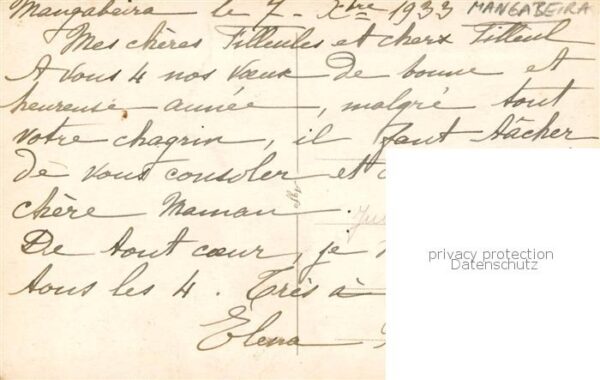 Mangabeira le 7 - Xbre 1933 MANGABEIRA
Mes chères Filleules et cherx Filleul
A vous 4 nos vœux de bonne et
heureuse année, malgré tout
votre chagrin, il faut tâcher
de vous consoler et
chère Maman.
De tout cœur, je
tous les 4. Très à
Elena
privacy protection
Datenschutz